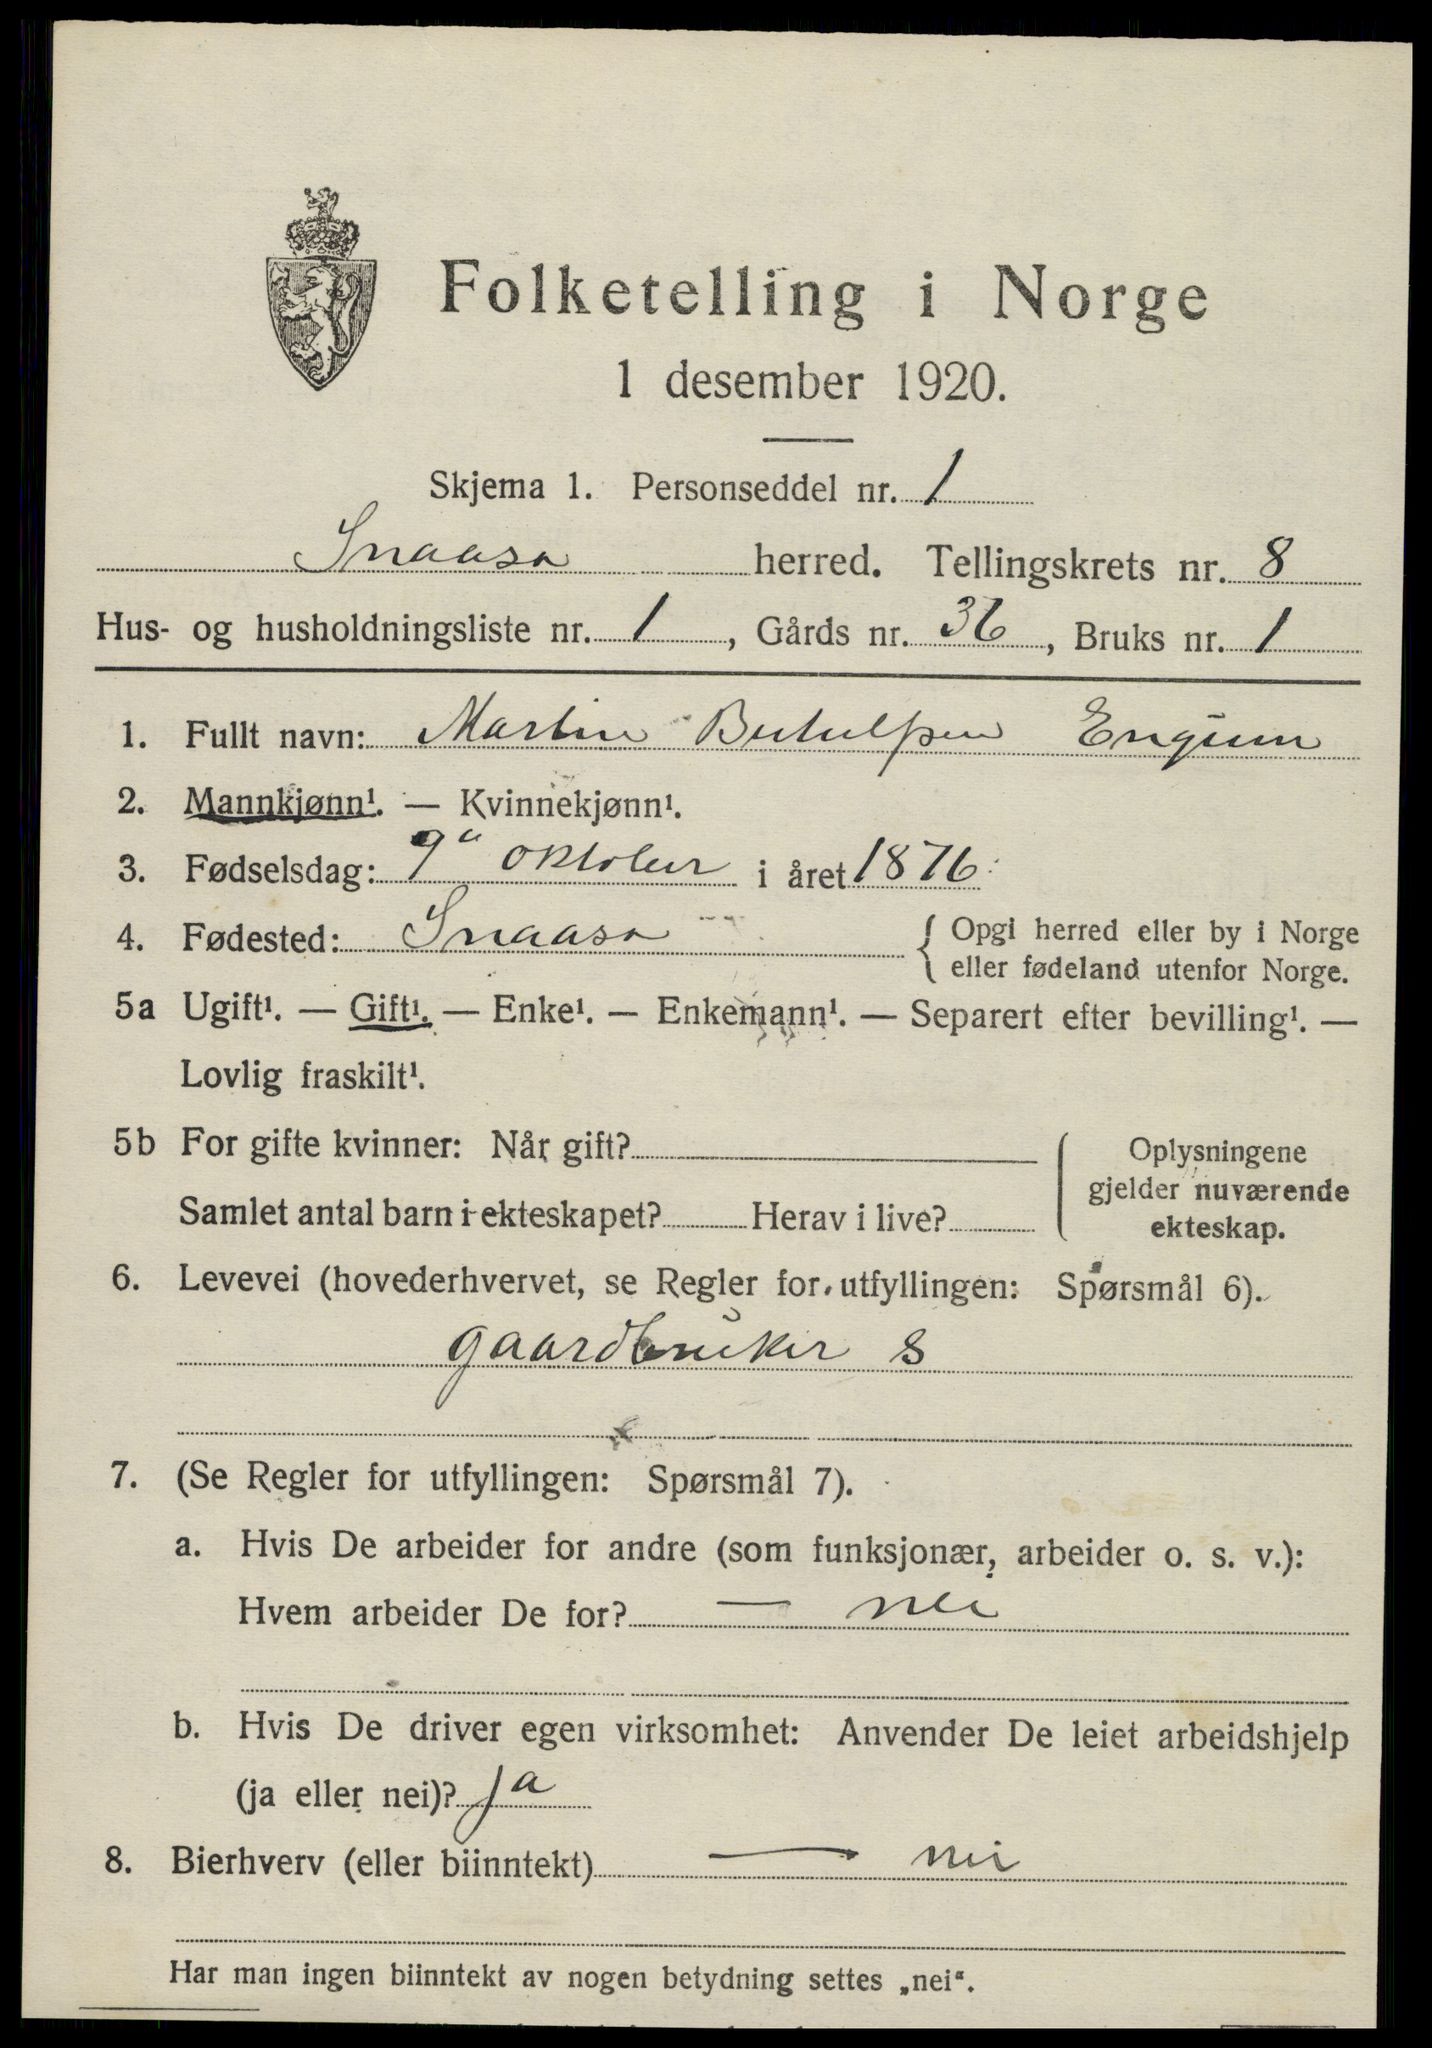 Folketelling i Norge
1 desember 1920.
Skjema 1. Personseddel nr. 1
Snaasa herred. Tellingskrets nr. 8
Hus- og husholdningsliste nr. 1, Gårds nr. 36, Bruks nr. 1
1. Fullt navn: Martin Engum
2. Mannkjønn¹. — Kvinnekjønn¹.
3. Fødselsdag: 9" oktober i året 1876
4. Fødested: Snaasa { Opgi herred eller by i Norge
eller fødeland utenfor Norge.
5a Ugift¹. — Gift¹. — Enke¹. — Enkemann¹. — Separert efter bevilling¹. —
Lovlig fraskilt¹.
5b For gifte kvinner: Når gift?
Samlet antal barn i ekteskapet? Herav i live?
Oplysningene
gjelder nuværende
ekteskap.
6. Levevei (hovederhvervet, se Regler for utfyllingen: Spørsmål 6).
gaardbruker S
7. (Se Regler for utfyllingen: Spørsmål 7).
a. Hvis De arbeider for andre (som funksjonær, arbeider o. s. v.):
Hvem arbeider De for? — nei
b. Hvis De driver egen virksomhet: Anvender De leiet arbeidshjelp
(ja eller nei)? ja
8. Bierhverv (eller biinntekt) — nei
Har man ingen biinntekt av nogen betydning settes „nei“.